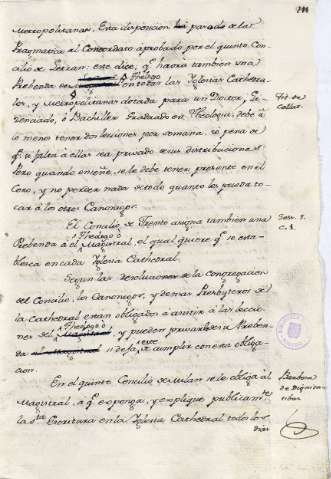 Metropolitanas. Esta disposicion ha pasado de las
Pragmatica al Concordato aprobado por el quinto Con-
cilio de Letran: este dice, q.e havrá tambien una
Theologo
Prebenda en todas las Yglesias Cathedra-
les, y Metropolitanas dotada para un Doctor, Li-
cenciado, ó Bachiller Graduado en Theologia, debe à
lo menos tener dos lecciones por semana, só pena de
q.e si falta à ellas sea privado de sus distribuciones
Pero quando enseñe, se le debe tener presente en el
Coro, y no perder nada de todo quanto les pueda to-
car à los otros Canonigos.
El Concilio de Trento asigna tambien una
Theologo ó
Prebenda à el Magistral, el qual quiere q.e se esta-
blezca en cada Yglesia Cathedral.
Segun las resoluciones de la Congregacion
del Concilio, los Canonigos, y demas Presbyteros de
la Cathedral estan obligados à asistir à las leccio-
Theologo
nes del y pueden privarles de Prebenda
si dexa de cumplir con esta obliga-
cion.
En el quinto Concilio de Milan se le obliga al
Magistral, à q.e exponga, y explique publicam.te
la S.ta Escritura en la Yglesia Cathedral todos los
Dias
Tit. de
Collat.
Sess. 5.
C. 1.